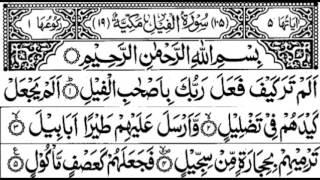 اٰیاتها ٥ (١٠٥) سُوْرَةُ الْفِيْلِ مَكِّيَّةٌ (١٩) رکوعها ١
بِسْمِ اللّٰهِ الرَّحْمٰنِ الرَّحِيْمِ
اَلَمْ تَرَ كَيْفَ فَعَلَ رَبُّكَ بِاَصْحٰبِ الْفِيْلِ ۝١ اَلَمْ يَجْعَلْ
كَيْدَهُمْ فِيْ تَضْلِيْلٍ ۝٢ وَّاَرْسَلَ عَلَيْهِمْ طَيْرًا اَبَابِيْلَ ۝٣
تَرْمِيْهِمْ بِحِجَارَةٍ مِّنْ سِجِّيْلٍ ۝٤ فَجَعَلَهُمْ كَعَصْفٍ مَّاْكُوْلٍ ۝٥